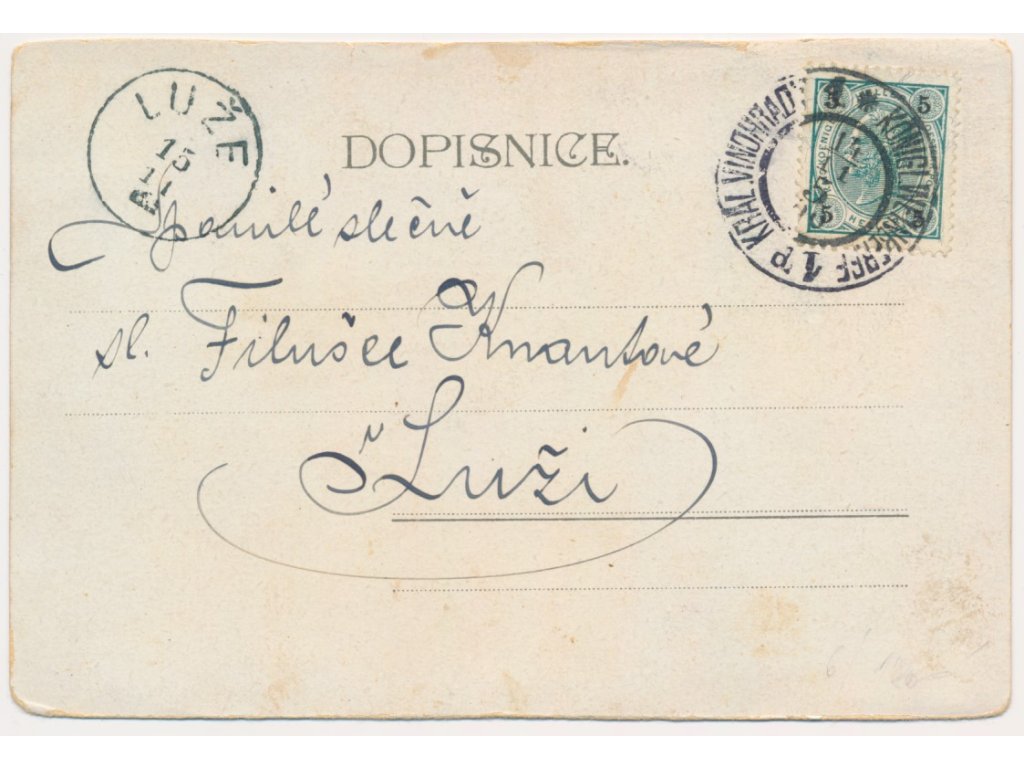 LUŽE
15
11
DOPISNICE.
KRÁL. VINOHRADY 1
KÖNIGL. WEINBERGE 1
5 5
5 5
slečně
sl. Filušce Knantové
v Luži